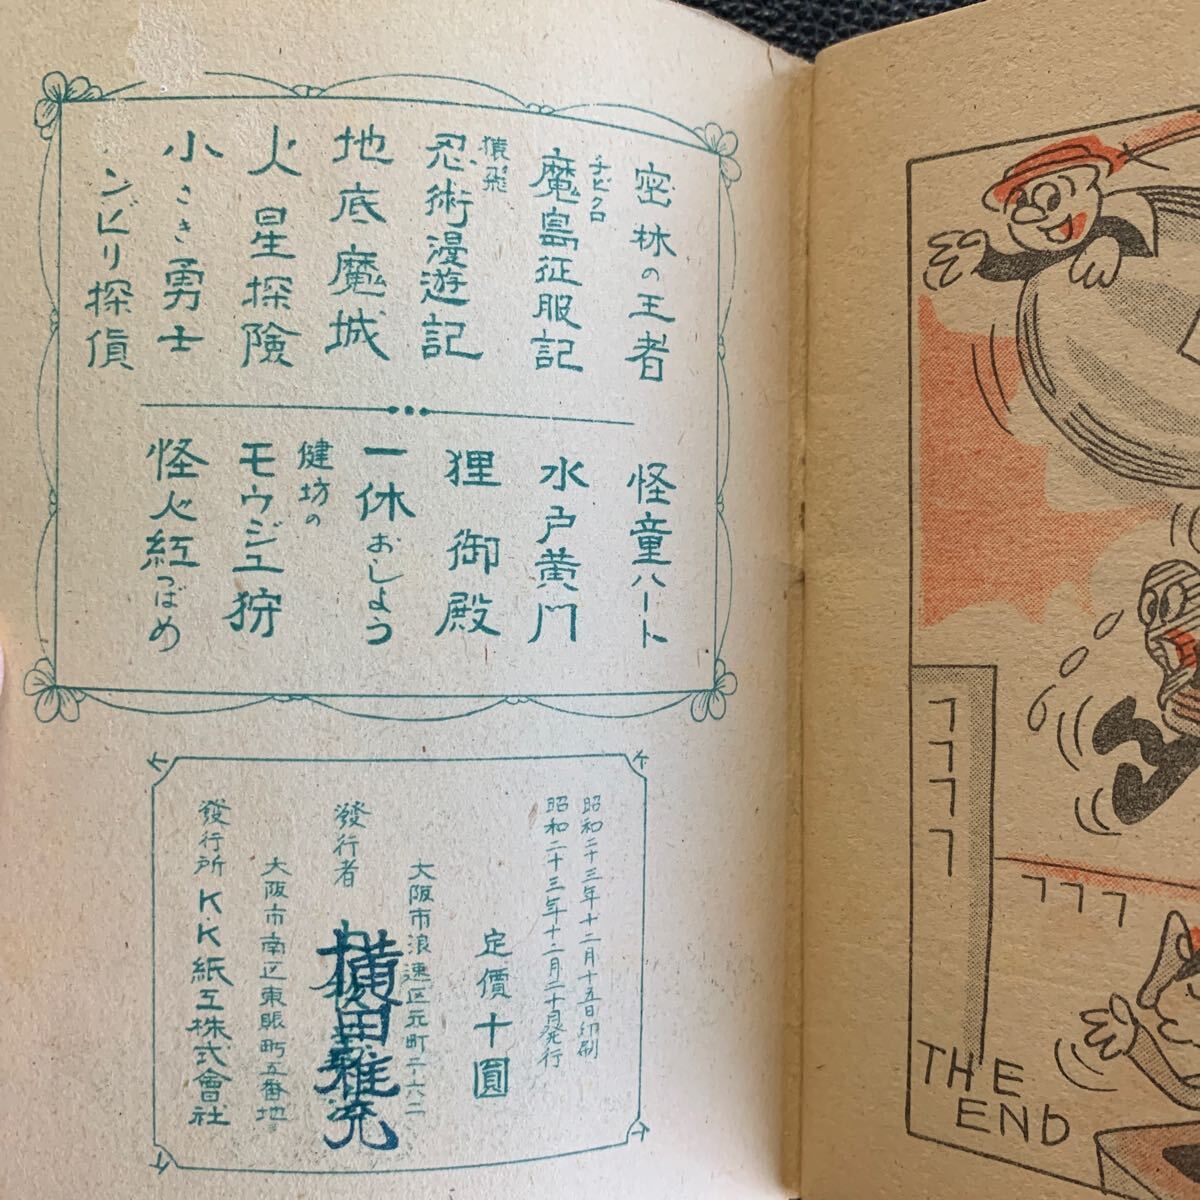 密林の王者
チビクロ
魔島征服記
猿飛
忍術漫遊記
地底魔城
火星探險
小さき勇士
ンビリ探偵
怪童ハート
水戸黄門
狸御殿
一休おしよう
健坊の
モウジユ狩
怪火紅つばめ
昭和二十三年十二月十五日印刷
昭和二十三年十二月二十日発行
定價十圓
大阪市浪速区元町二ノ六二
發行者
大阪市南区東賑町五番地
發行所 K.K紙工株式會社
THE
END